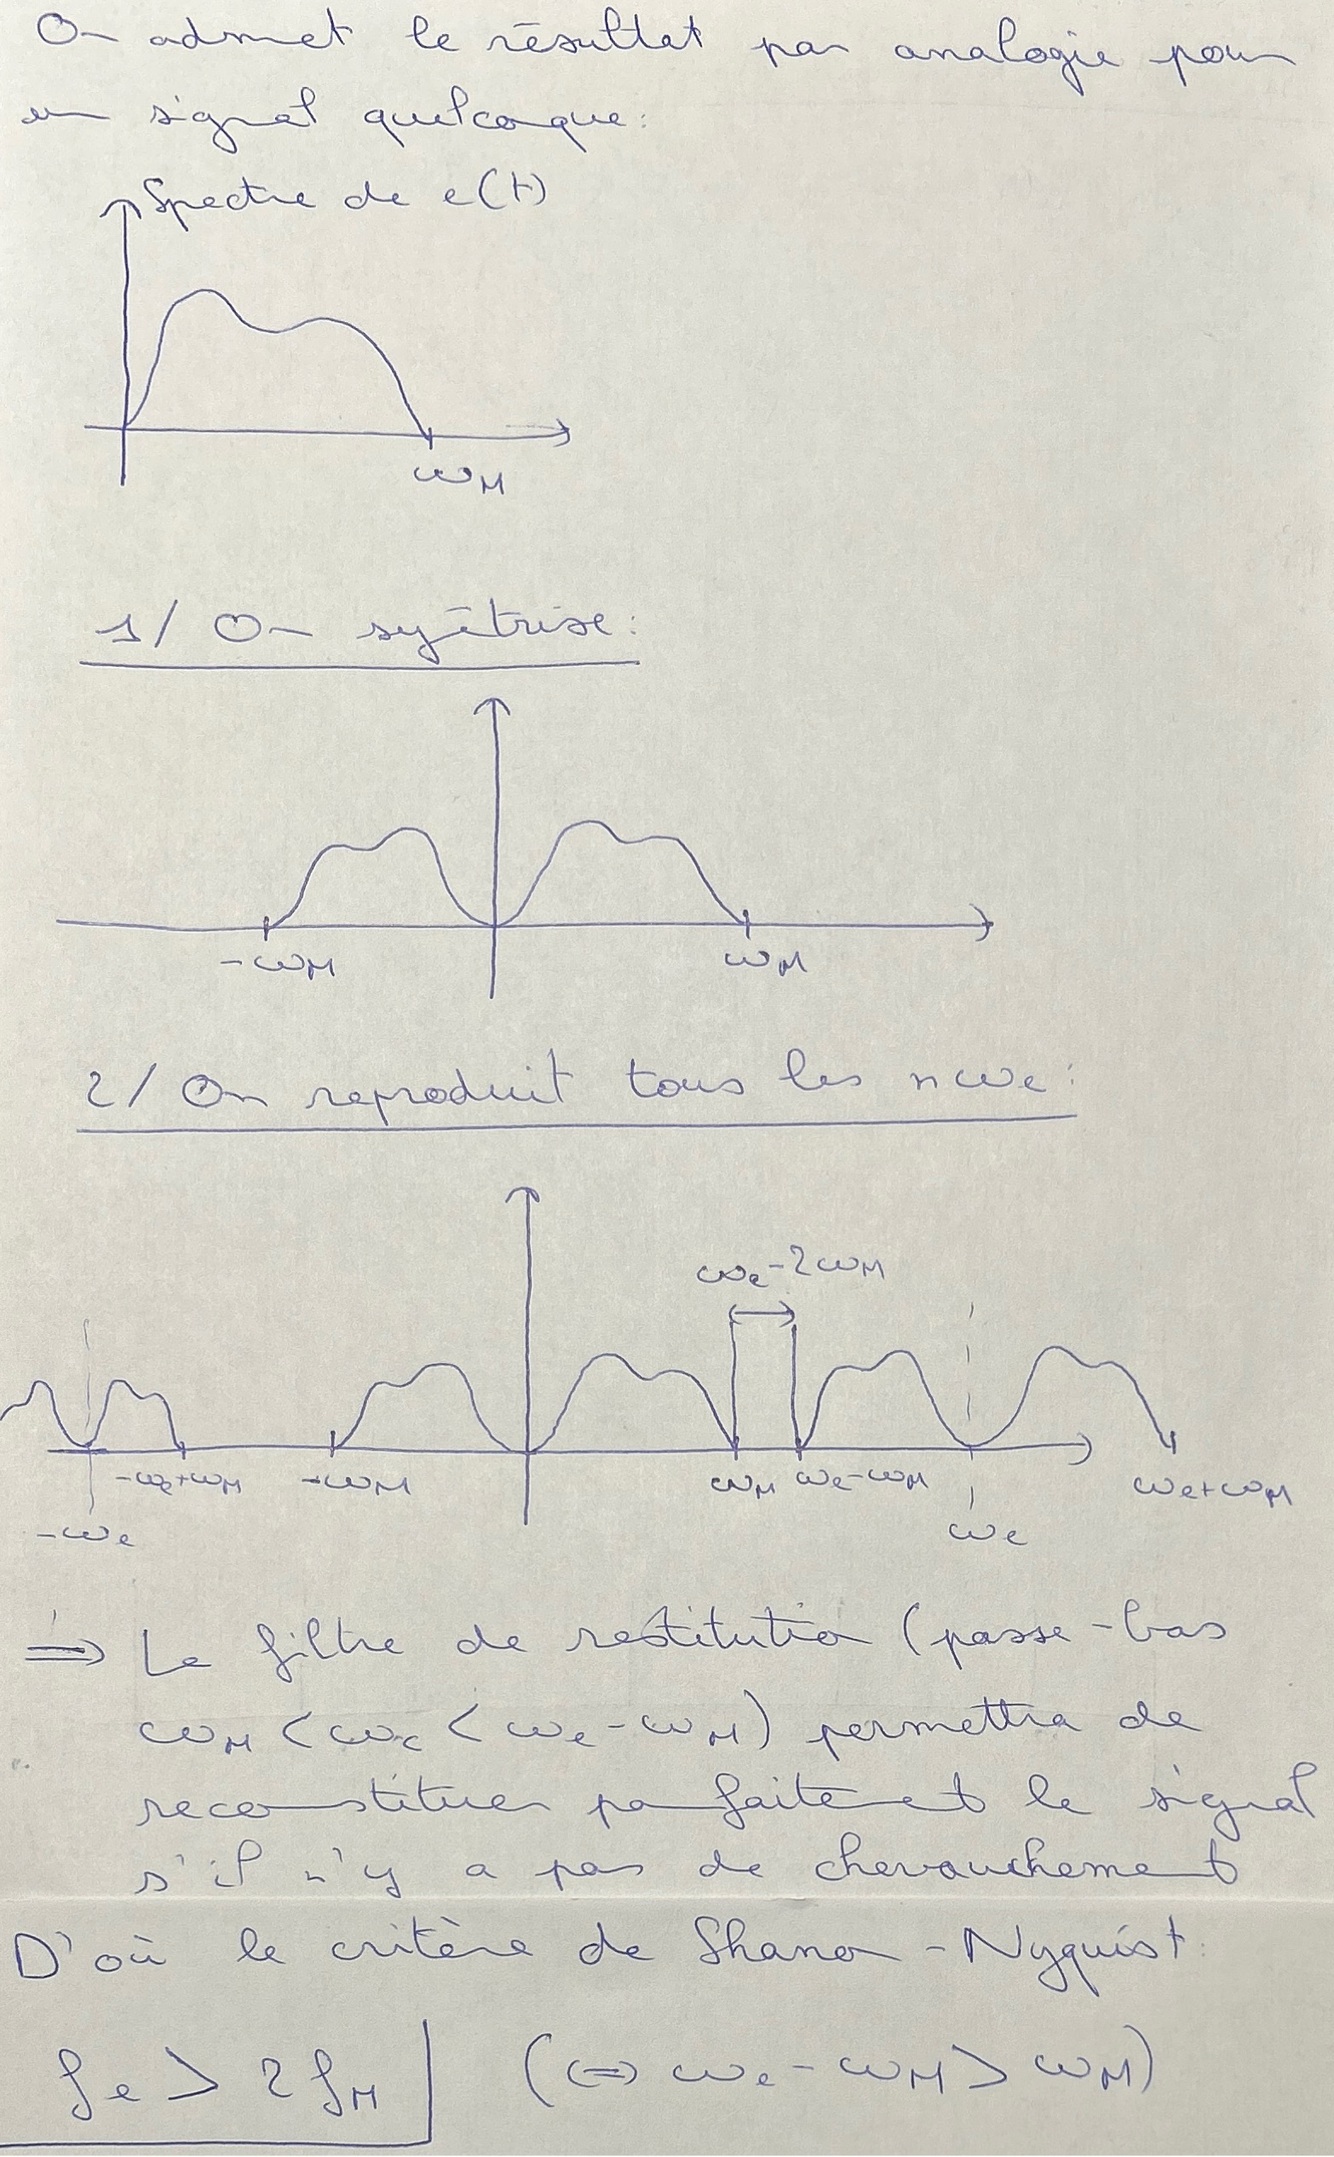 On admet le résultat par analogie pour
un signal quelconque:
Spectre de e(t)
ωM
1/ On symétrise:
-ωM
ωM
2/ On reproduit tous les nωe:
ωe-2ωM
-ωe+ωM
-ωM
ωM
ωe-ωM
ωe+ωM
-ωe
ωe
⇒ Le filtre de restitution (passe-bas
ωM < ωc < ωe-ωM) permettra de
reconstituer parfaitement le signal
s'il n'y a pas de chevauchement
D'où le critère de Shanon-Nyquist:
fe > 2fM (⇔ ωe-ωM > ωM)